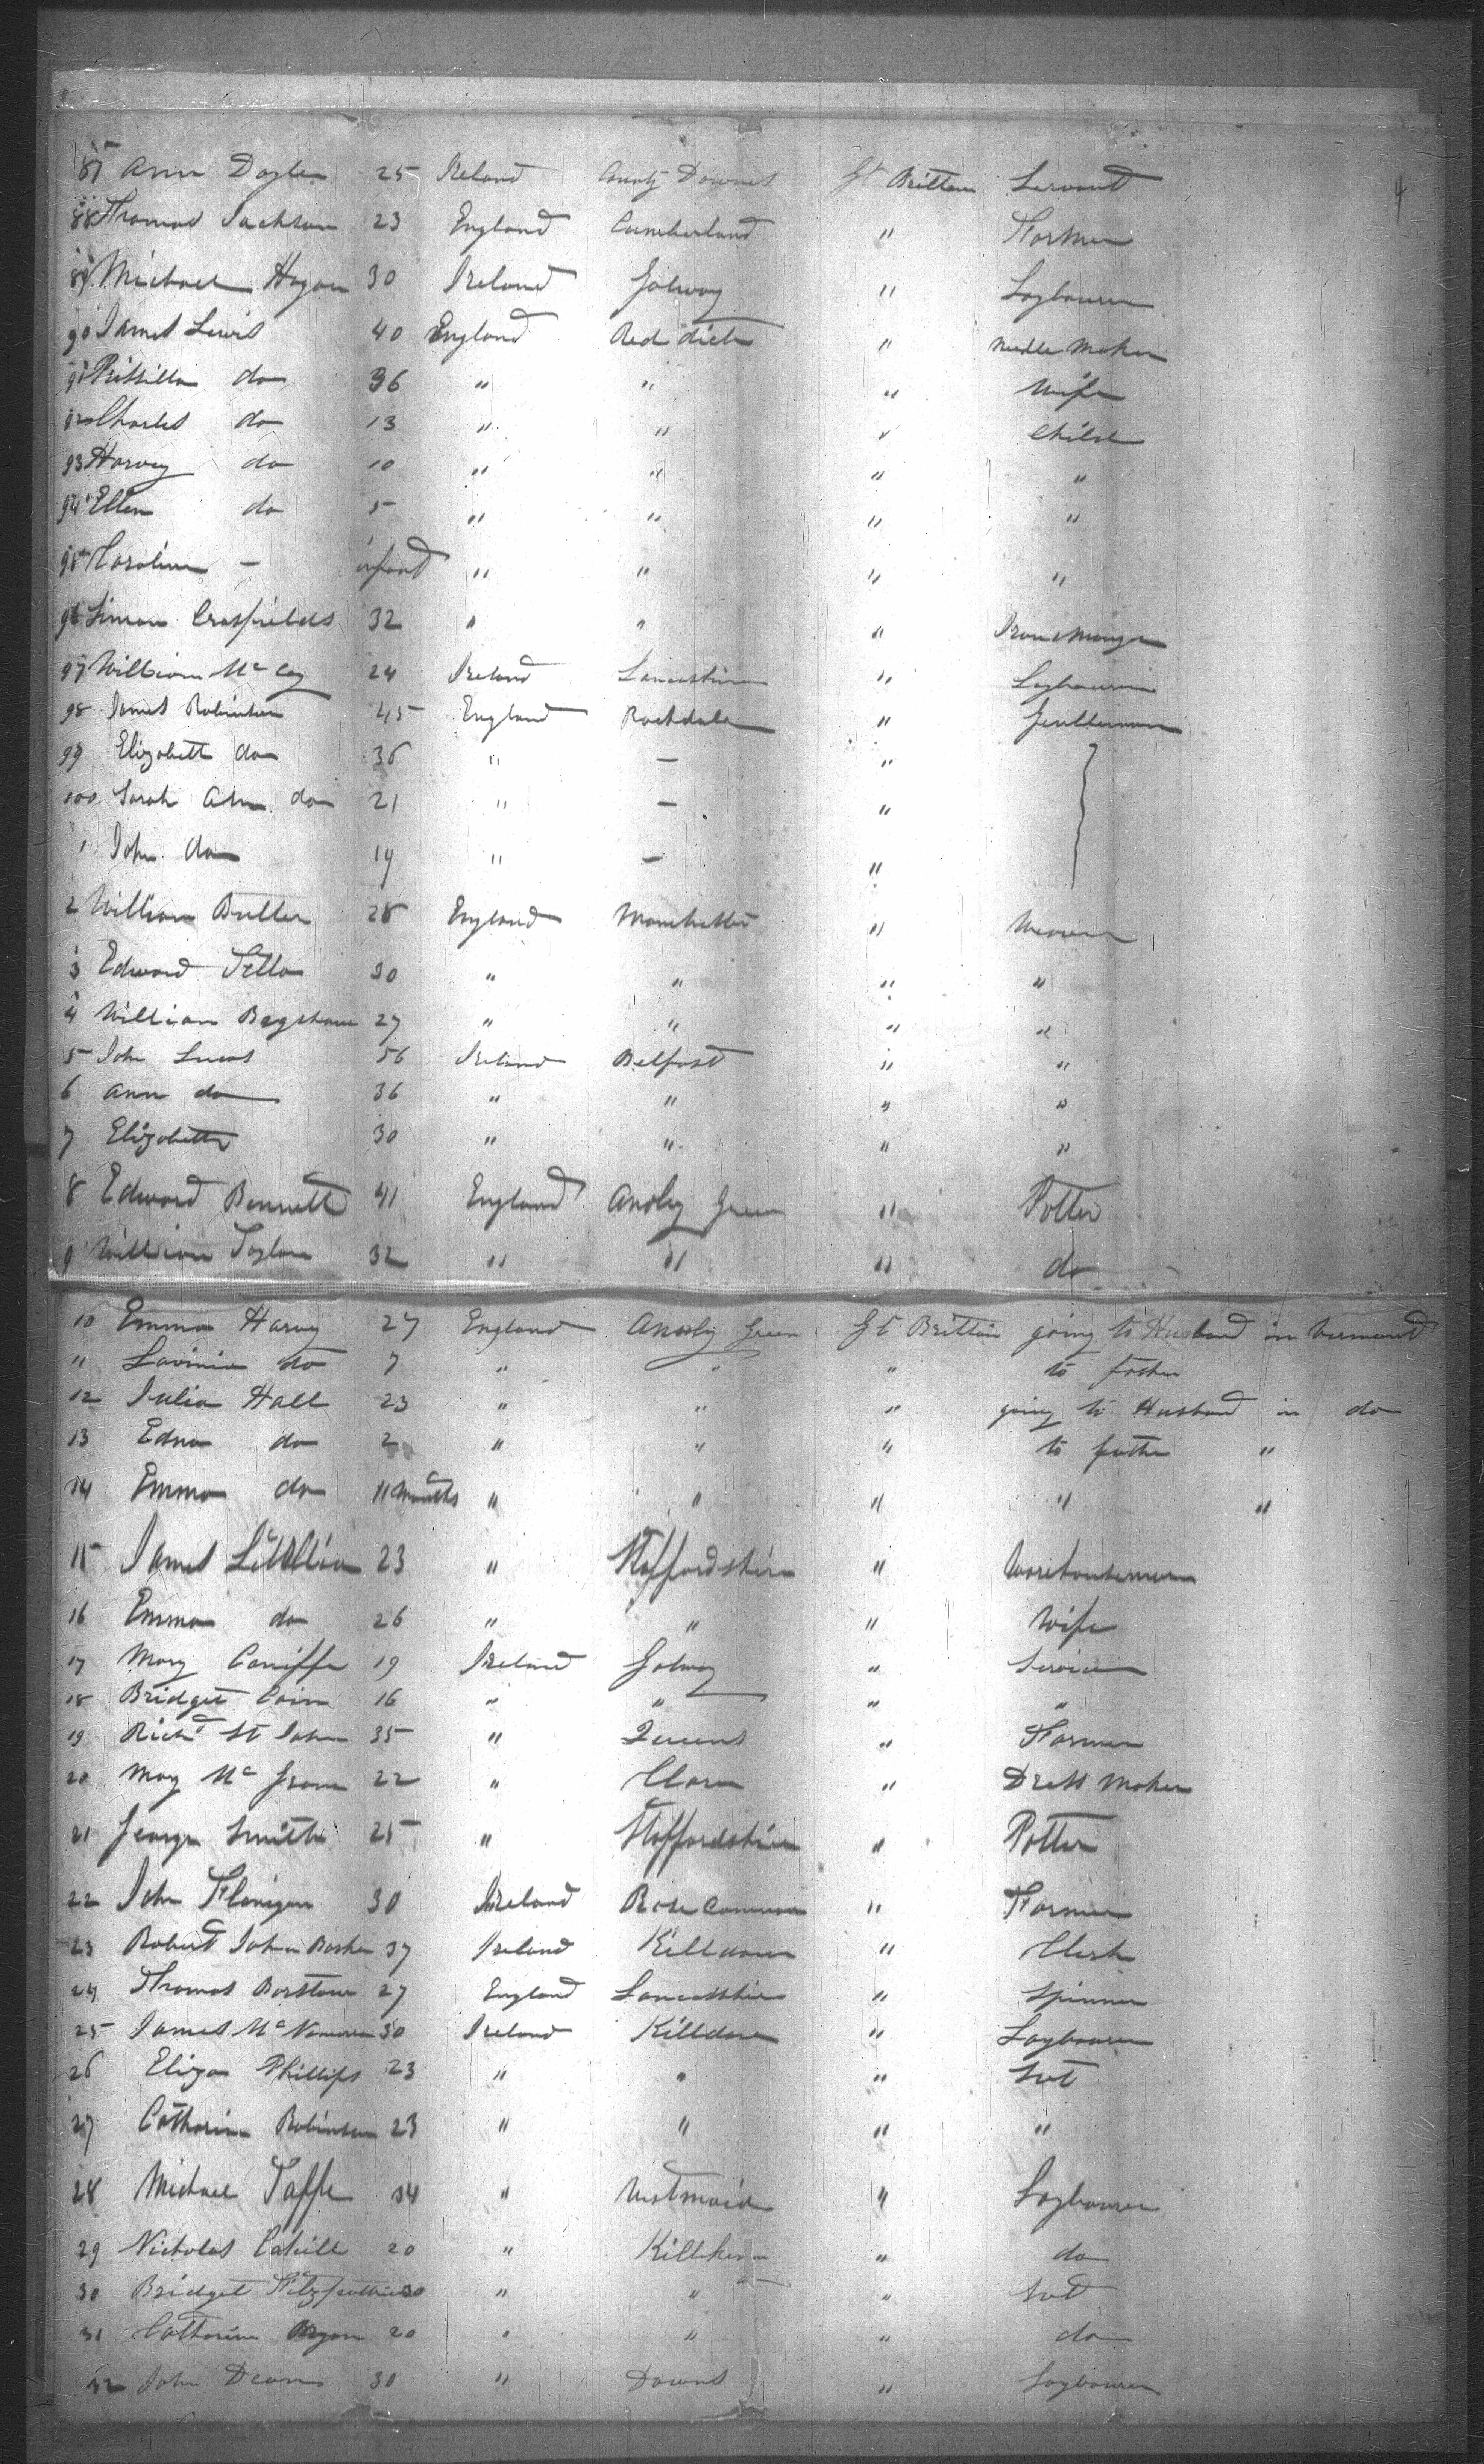 4
87 Ann Doyle 25 Ireland County Downes Gt Brittain Servant
88 Thomas Jackson 23 England Cumberland " Farmer
89 Michael Hogan 30 Ireland Galway " Laybourer
90 James Lewis 40 England Red ditch " Needle Maker
91 Prissilla do 36 " " " Wife
92 Charles do 13 " " " Child
93 Harvey do 10 " " " "
94 Ellen do 5 " " " "
95 Caroline — infant " " " "
96 Simon Crosfields 32 " " " Ironmonger
97 William Mc Coy 24 Ireland Lancashire " Laybourer
98 James Robinson 45 England Rochdale " Gentleman
99 Elizabeth do 36 " — "
100 Sarah Ann do 21 " — "
1 John do 19 " — "
2 William Butler 28 England Manchester " Weaver
3 Edward 30 " " " "
4 William Bagshaw 27 " " " "
5 John Lucas 56 Ireland Belfast " "
6 Ann do 36 " " " "
7 Elizabeth 30 " " " "
8 Edward Bennett 41 England Green " Potter
9 William Taylor 32 " " " do
10 Emma Harvy 27 England Green Gt Brittain going to Husband in Vermont
11 Lavinia do 7 " " " to father
12 Julia Hall 23 " " " going to Husband in do
13 Edna do 2 " " " to father "
14 Emma do 11 Months " " " " "
15 James 23 " Staffordshire " Warehouseman
16 Emma do 26 " " " Wife
17 Mary Caniffe 19 Ireland Galway " Service
18 Bridget Coin 16 " " " "
19 Richd St John 35 " Queens " Farmer
20 May Mc 22 " Clare " Dress Maker
21 George Smith 25 " Staffordshire " Potter
22 John Flanigan 30 Ireland Rose Common " Farmer
23 Robert John 37 Ireland Killdare " Clerk
24 Thomas Barstow 27 England Lancasshire " Spinner
25 James Mc Namara 30 Ireland Killdare " Laybourer
26 Eliza Phillips 23 " " " Svt
27 Catharine Robinson 23 " " " "
28 Michael Taffe 34 " Westmaid " Laybourer
29 Nicholas Cahill 20 " " do
30 Bridget Fitzpatrick 30 " " " Svt
31 Catharine Bryan 20 " " " do
32 John Dean 30 " Downs " Laybourer